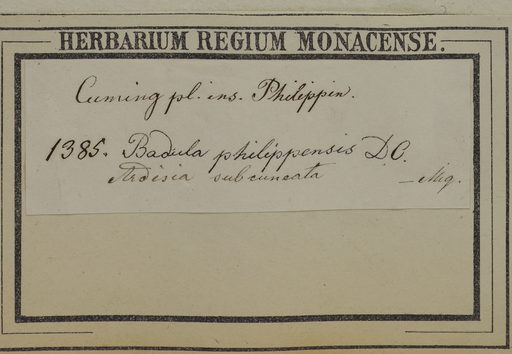 HERBARIUM REGIUM MONACENSE.
Cuming pl. ins. Philippin.
1385. Badula philippensis DC.
Ardisia subcuneata – Miq.